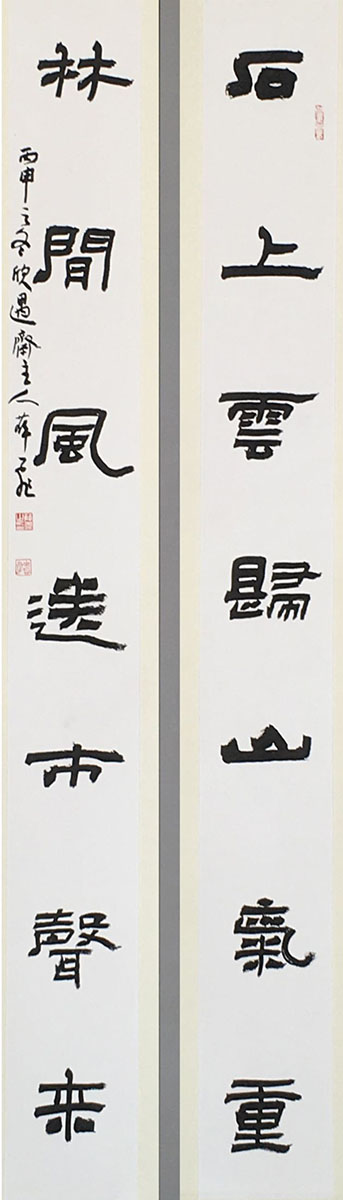 石上雲歸山氣重
林間風送市聲来
丙申之冬欣遇齋主人薛